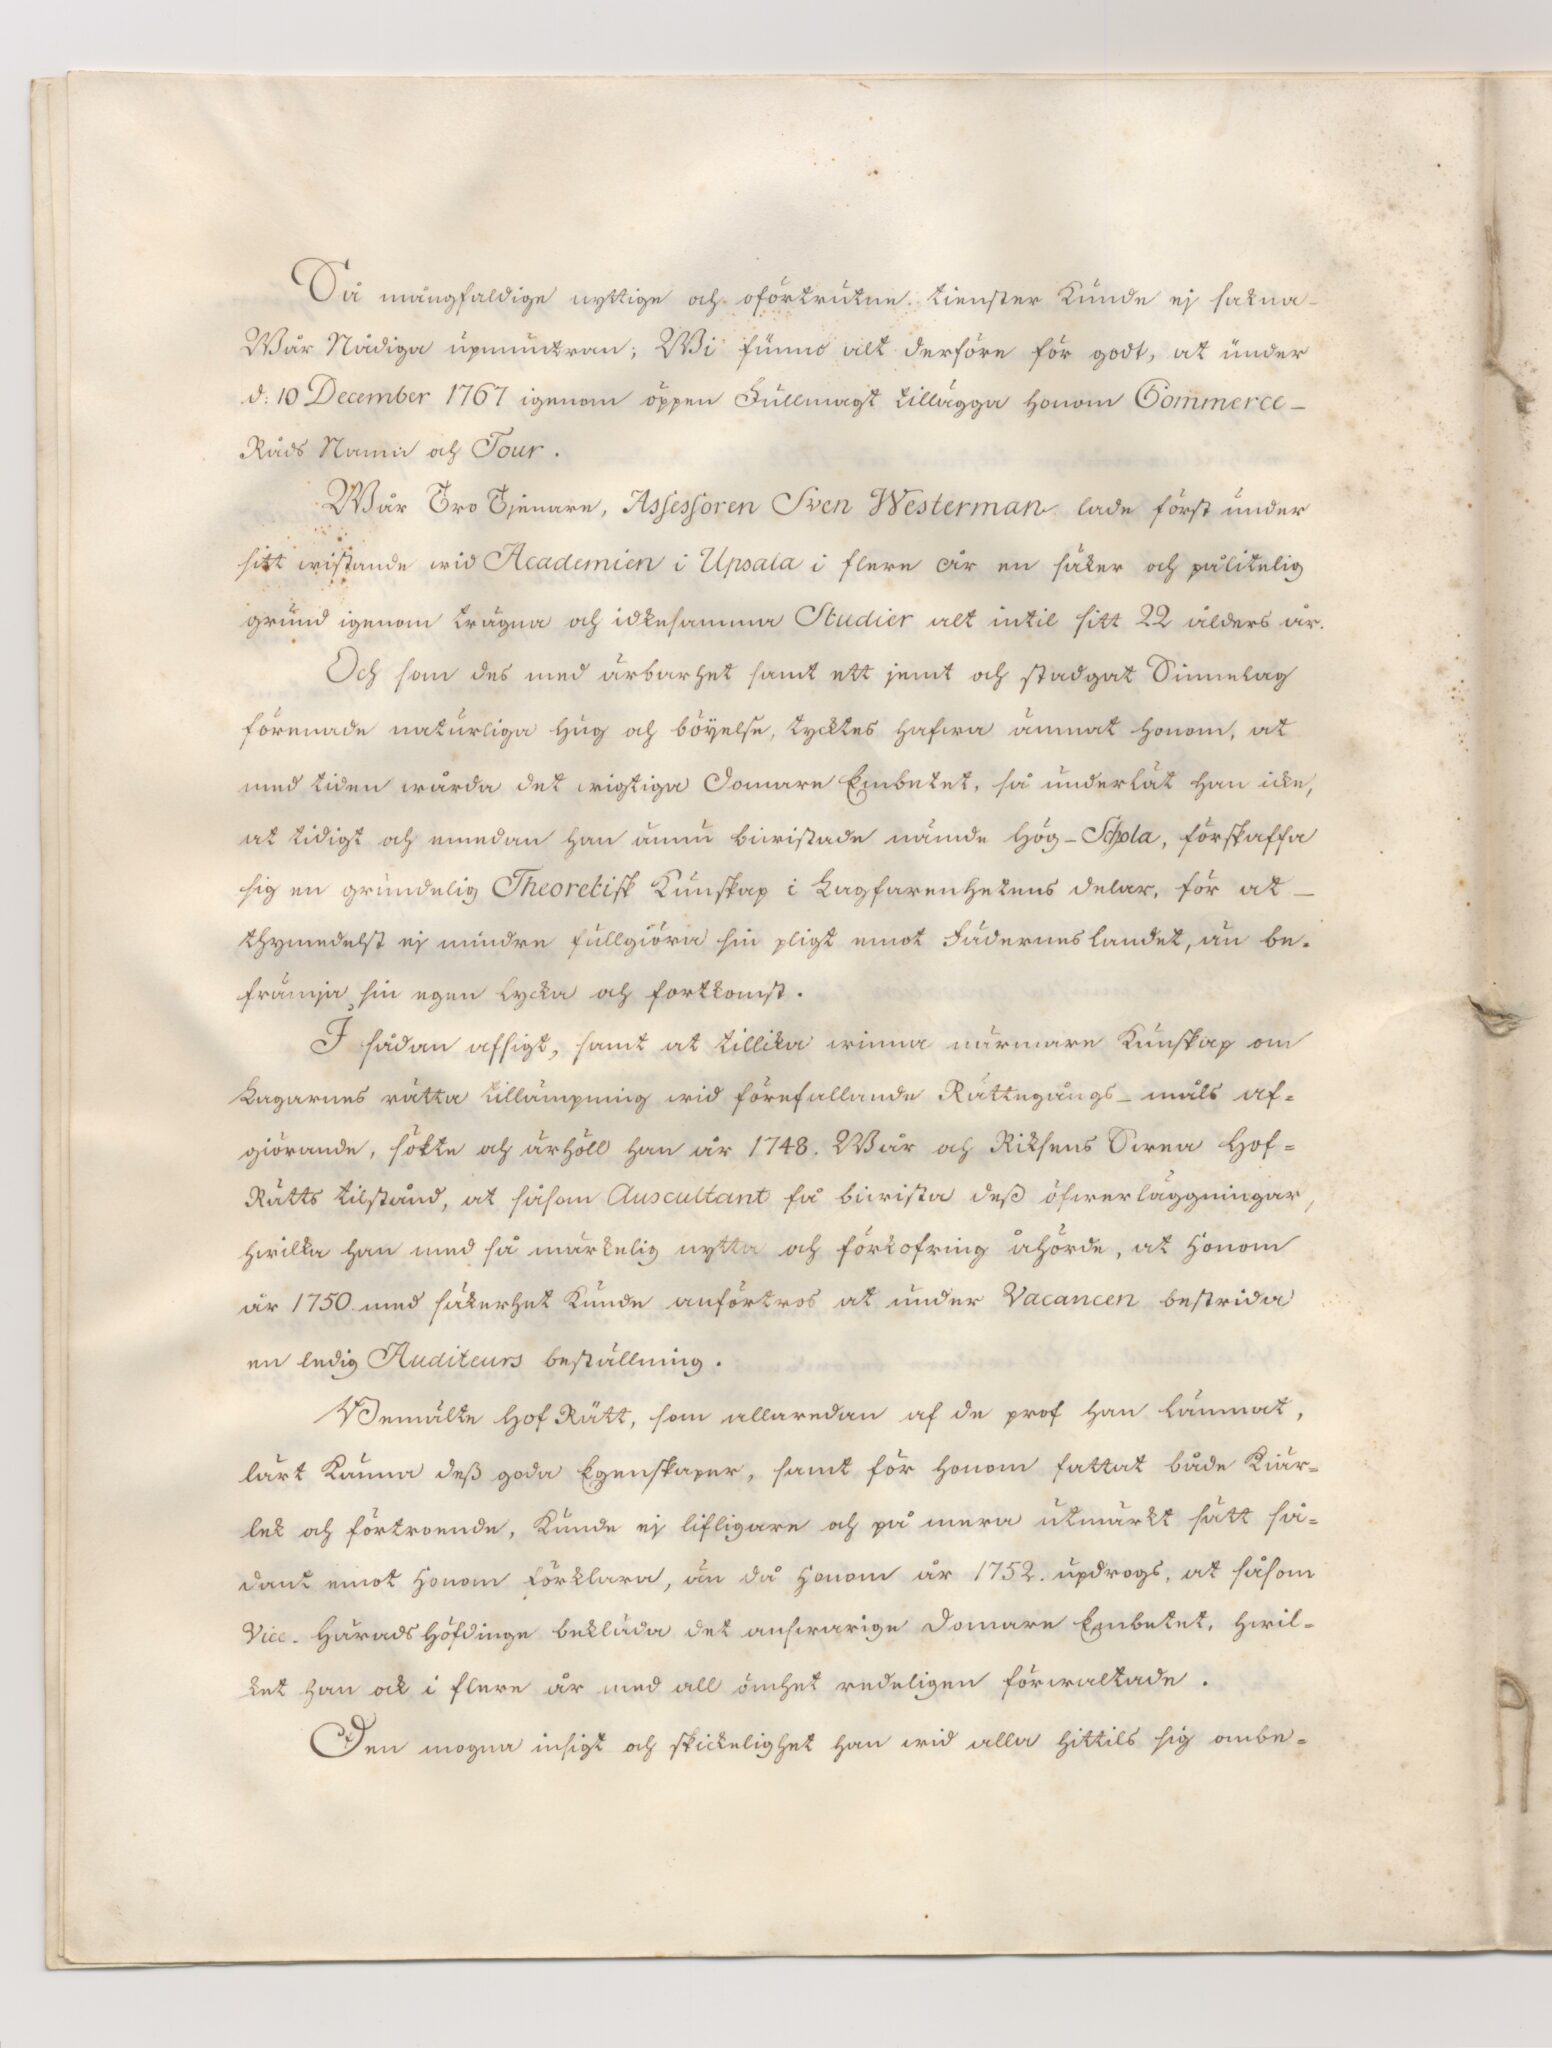 Så mångfaldige nyttige och oförtrutne tienster kunde ej sakna
Wår Nådiga upmuntran; Wi funno alt derföre för godt, at under
d: 10 December 1767 igenom öppen Fullmagt tillägga honom Commerce-
Råds Namn och Tour.
Wår Tro Tjenare, Assessoren Sven Westerman lade först under
sitt wistande wid Academien i Upsala i flere år en säker och pålitelig
grund igenom trägna och idkesamma Studier alt intil sitt 22 ålders år.
Och som des med ärbarhet samt ett jemt och stadgat Sinnelag
förenade naturliga hug och böyelse, tycktes hafwa ämnat honom, at
med tiden wårda det wigtiga Domare Embetet, så underlät han icke,
at tidigt och emedan han ännu biwistade nämde Hög-Schola, förskaffa
sig en grundelig Theoretisk Kunskap i Lagfarenhetens delar, för at
thymedelst ej mindre fullgiöra sin pligt emot Fäderneslandet, än be-
främja sin egen lycka och fortkomst.
I sådan afsigt, samt at tillika winna närmare Kunskap om
Lagarnes rätta tillämpning wid förefallande Rättegångs-måls af-
giörande, sökte och ärhöll han år 1748. Wår och Riksens Swea Hof-
Rätts tilstånd, at såsom Auscultant få biwista deß öfwerläggningar,
hwilka han med så märkelig nytta och förkofring åhörde, at honom
år 1750 med säkerhet kunde anförtros at under Vacancen bestrida
en ledig Auditeurs beställning.
Bemälte Hof Rätt, som allaredan af de prof han lämnat,
lärt känna deß goda Egenskaper, samt för honom fattat både Kiär-
lek och förtroende, kunde ej lifligare och på mera utmärkt sätt så-
dant emot honom förklara, än då honom år 1752. updrogs, at såsom
Vice. Härads Höfdinge bekläda det answarige Domare Embetet, hwil-
ket han ock i flere år med all ömhet redeligen förwaltade.
Den mogna insigt och skickelighet han wid alla hittils sig ombe-